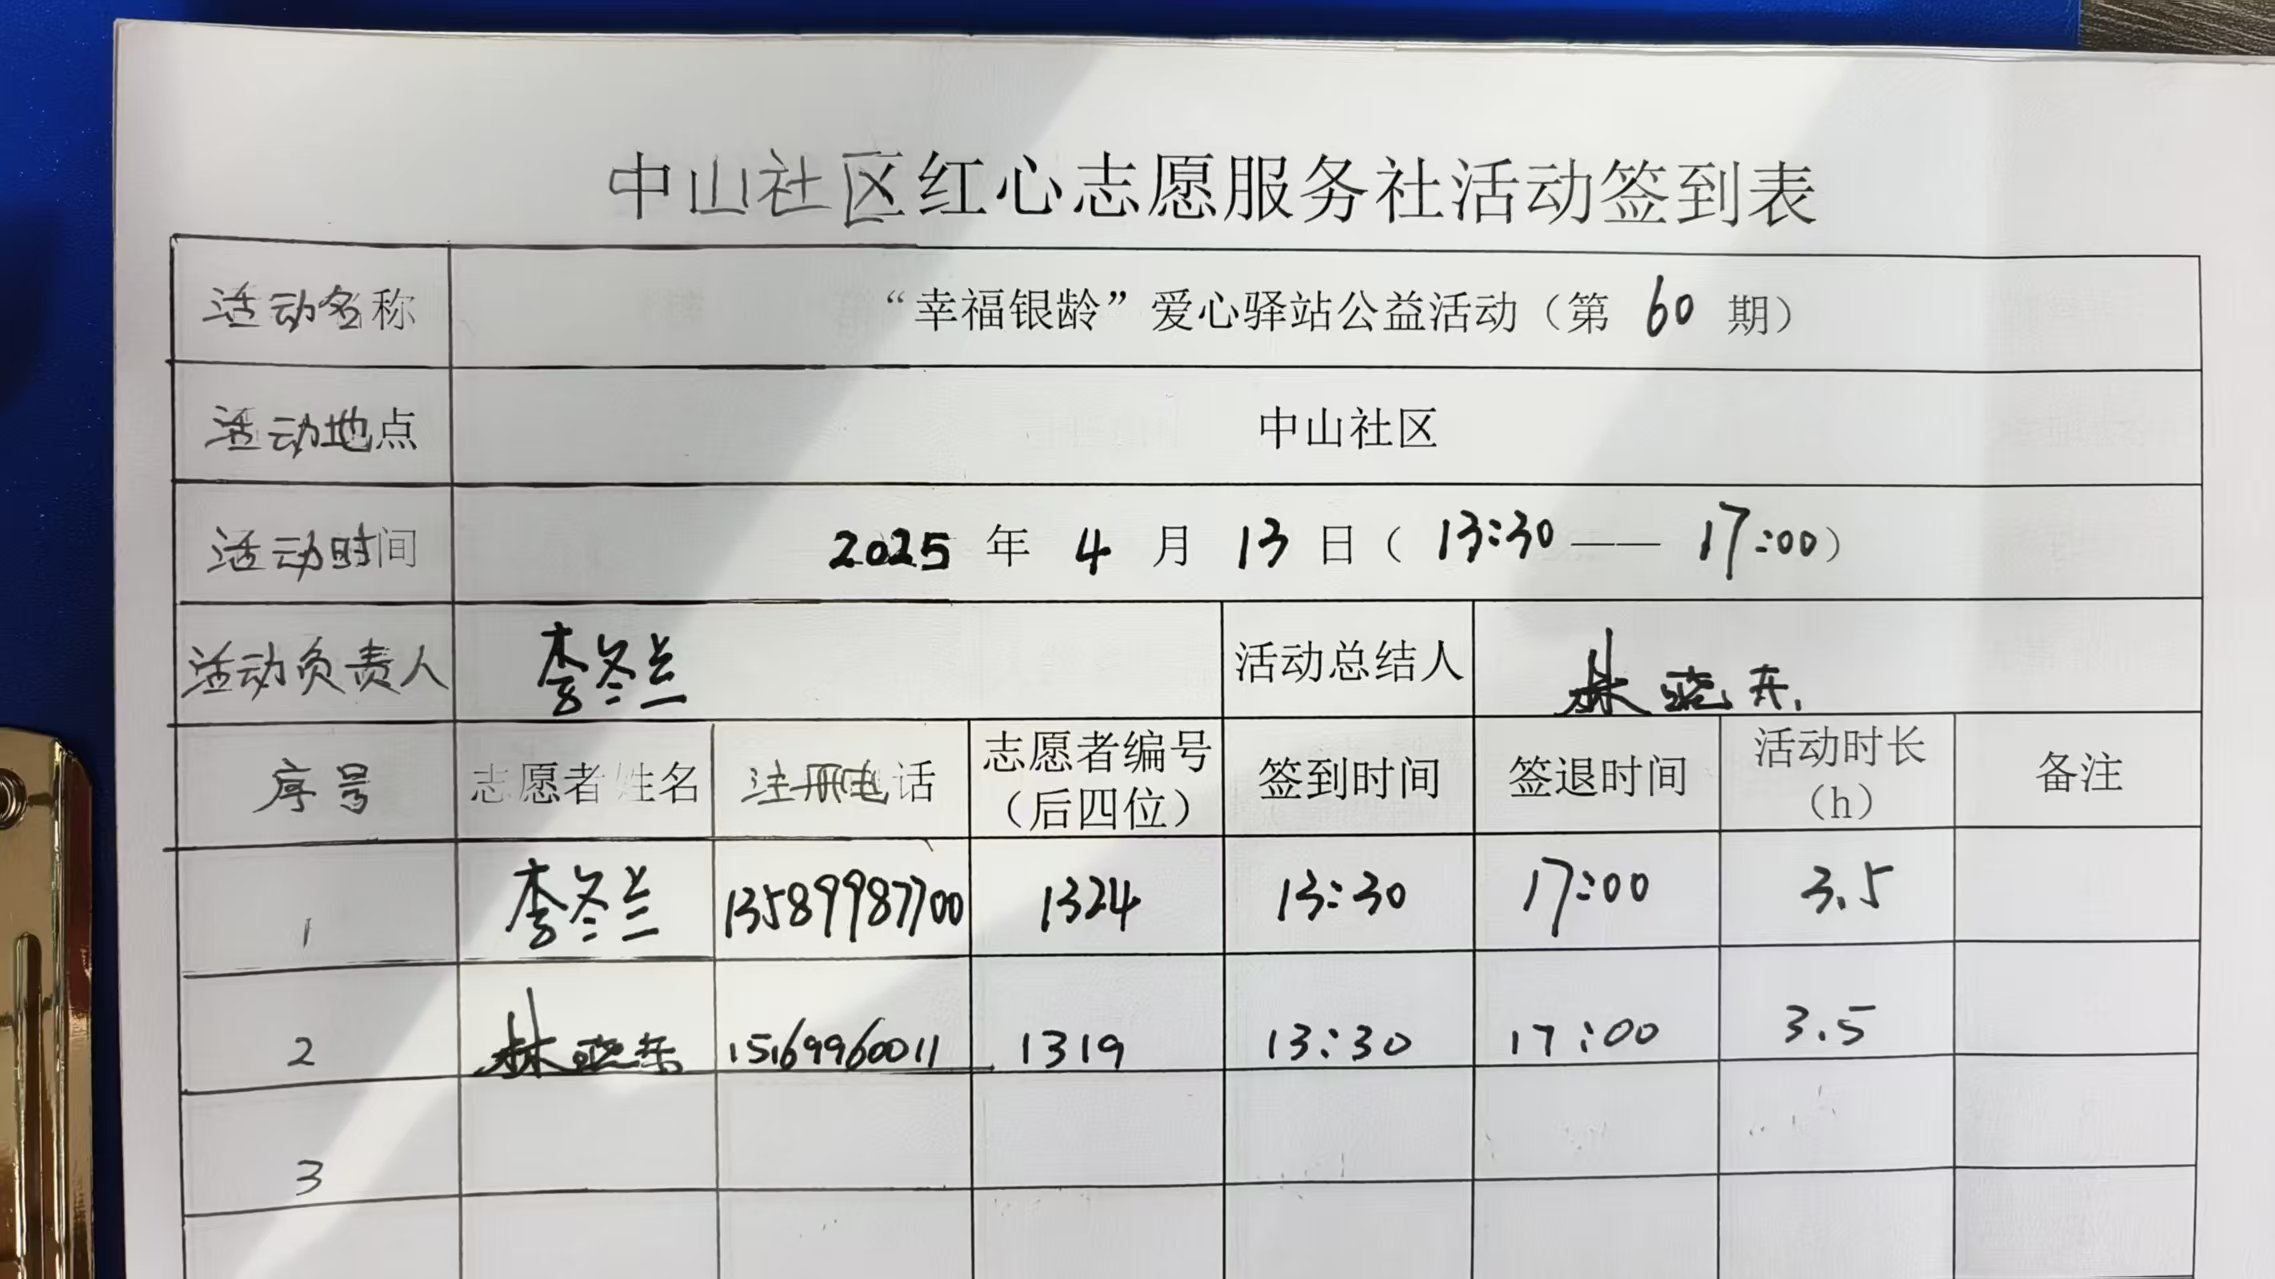 中山社区红心志愿服务社活动签到表
活动名称 “幸福银龄”爱心驿站公益活动（第 60 期）
活动地点 中山社区
活动时间 2025 年 4 月 13 日（ 13:30 —— 17:00）
活动负责人 李冬兰 活动总结人 林晓东
序号 志愿者姓名 注册电话 志愿者编号（后四位） 签到时间 签退时间 活动时长（h） 备注
1 李冬兰 13589987700 1324 13:30 17:00 3.5
2 林晓东 15169960011 1319 13:30 17:00 3.5
3